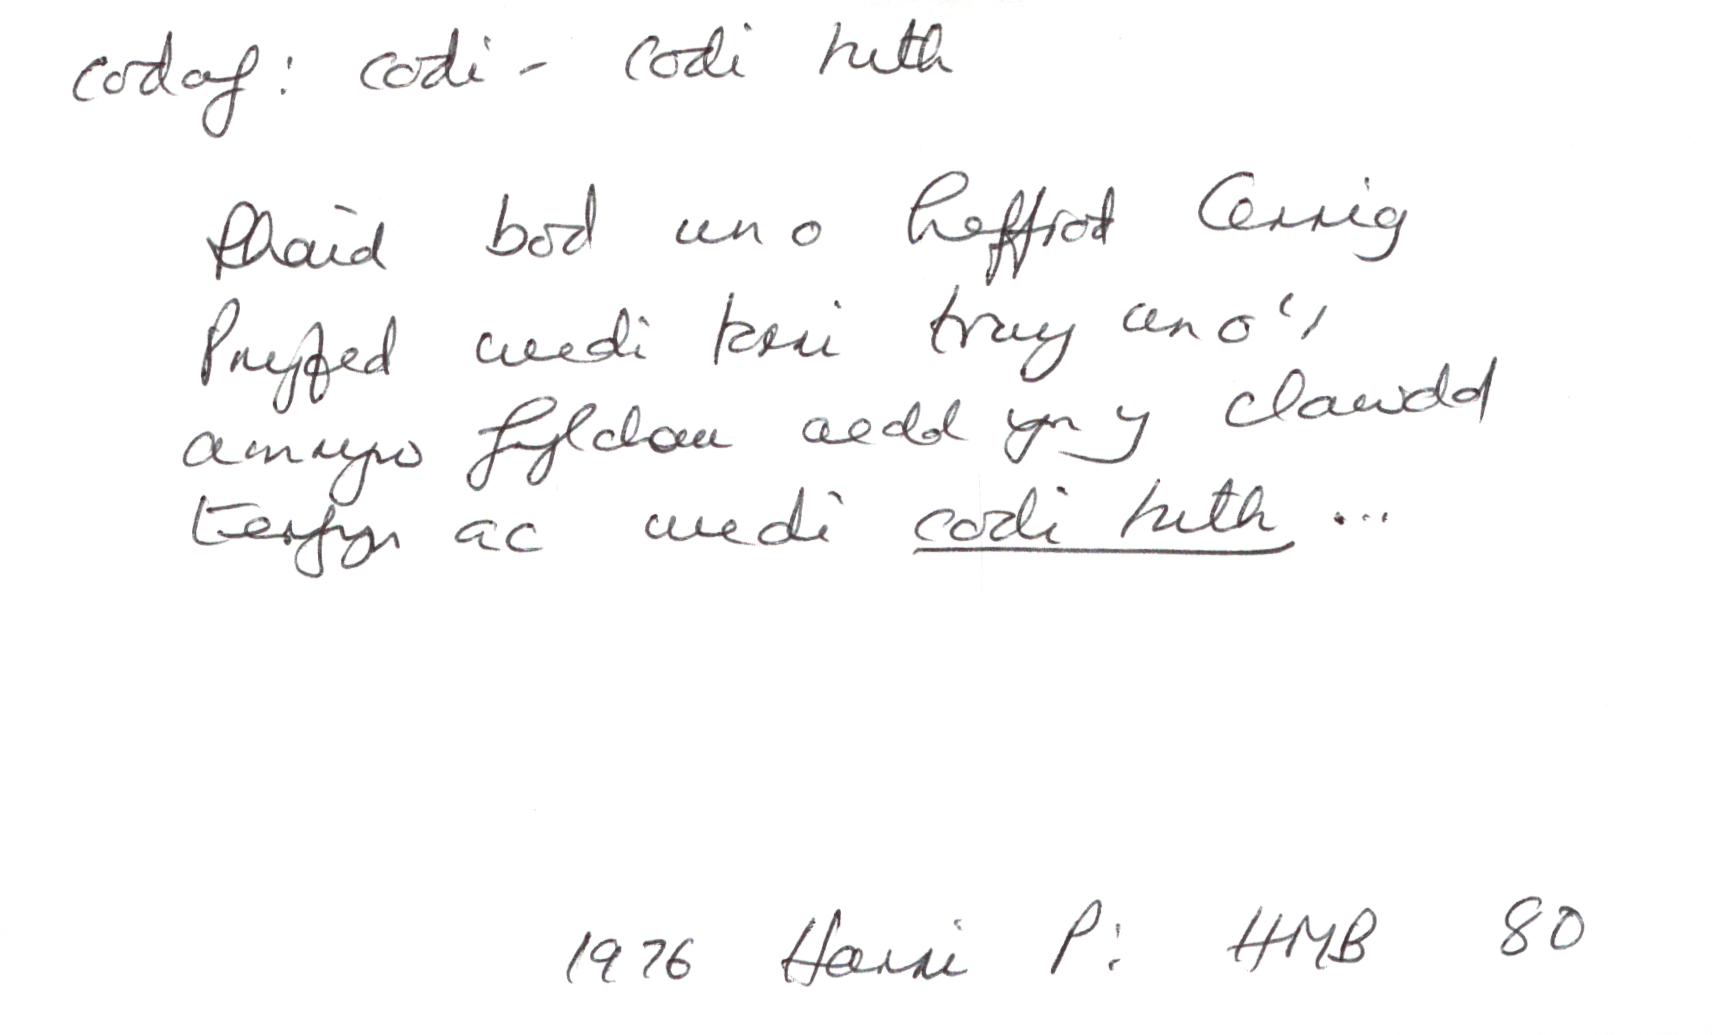 codaf: codi - codi hwth
Rhaid bod un o heffrod Cerrig
Pryfed wedi torri trwy un o'r
amryw fylchau oedd yn y clawdd
terfyn ac wedi codi hwth ...
1976 Harri P: HMB 80